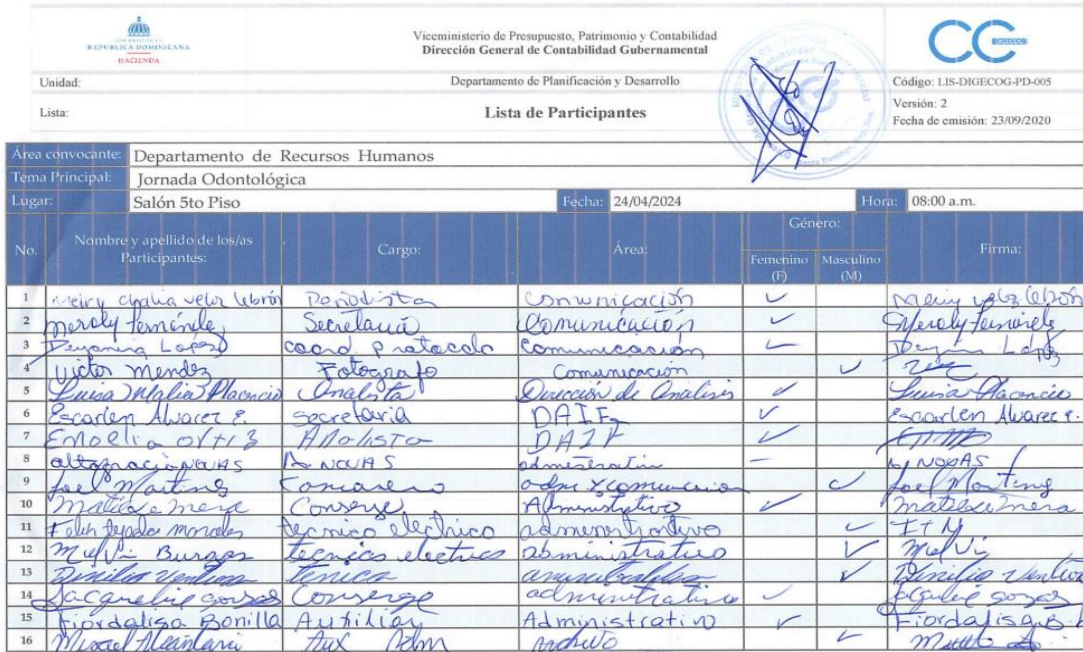 GOBIERNO DE LA
REPÚBLICA DOMINICANA
HACIENDA
Viceministerio de Presupuesto, Patrimonio y Contabilidad
Dirección General de Contabilidad Gubernamental
CC DIGECOG
Unidad: Departamento de Planificación y Desarrollo Código: LIS-DIGECOG-PD-005
Lista: Lista de Participantes Versión: 2
Fecha de emisión: 23/09/2020
Área convocante: Departamento de Recursos Humanos
Tema Principal: Jornada Odontológica
Lugar: Salón 5to Piso Fecha: 24/04/2024 Hora: 08:00 a.m.
No. Nombre y apellido de los/as Participantes: Cargo: Área: Género: Femenino (F) Masculino (M) Firma:
1 Meiry veloz lebrón Periodista Comunicación ✓ Meiry veloz lebrón
2 Meraly fernández Secretaria Comunicación ✓ Meraly fernández
3 Deyanira Lopez coord protocolo comunicación ✓ Lopez
4 Victor Mendez Fotografo Comunicación ✓
5 Luisa Malia Placencio Analista Dirección de Analisis ✓ Luisa Placencio
6 Escarlen Alvarez E. secretaria DAIF ✓ Escarlen Alvarez E.
7 Emoelia ortiz Analista DAIF ✓
8 altagracia NOVAS NOVAS ✓ NOVAS
9 Joel Martinez ✓ Joel Martinez
10 Matilde mera Conserje Administrativo ✓ matilde mera
11 Felix tejada morales tecnico electrico administrativo ✓ FTM
12 Melvi Burgos tecnico electrico administrativo ✓ Melvi
13 Ventura ✓
14 Jacqueline Conserge administrativo ✓
15 Fiordaliza Bonilla Auxiliar Administrativo ✓ Fiordaliza B.
16 Misael Alcantara Aux Adm Archivo ✓